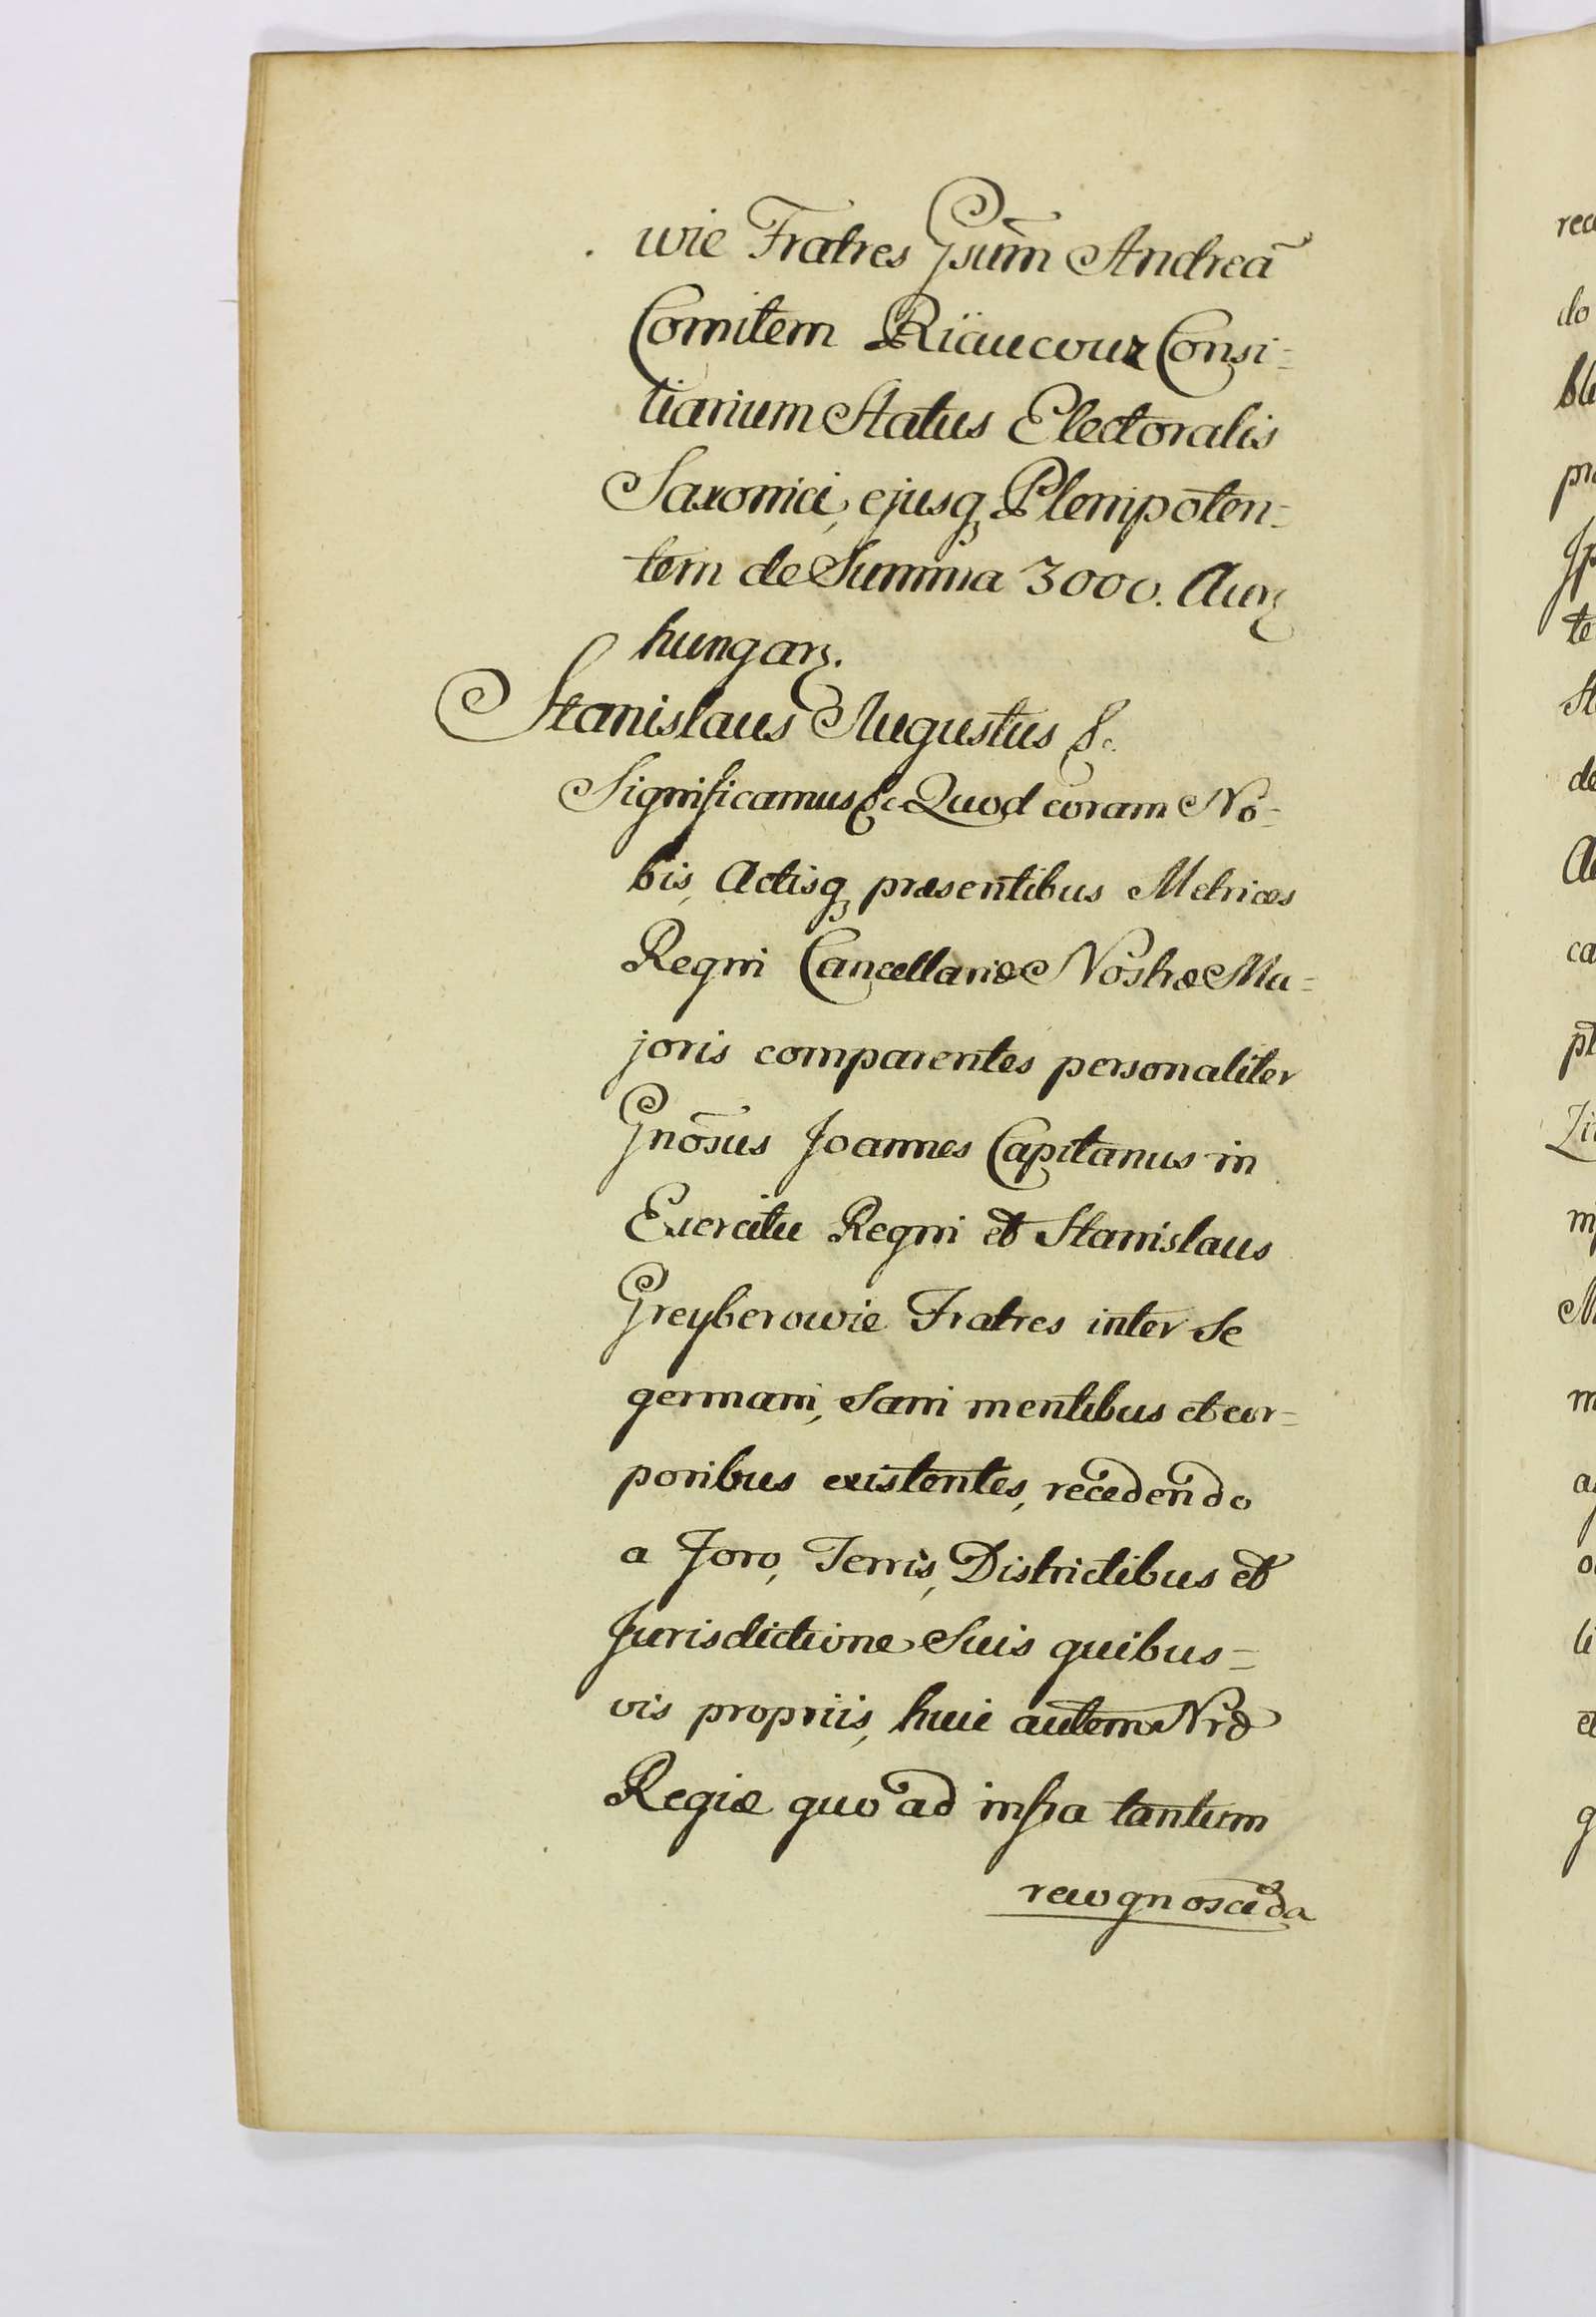 wie Fratres Gsum̃ Andreã
Comitem Riaucour Consi=
liarium Status Electoralis
Saxonici, ejusq₃ Plenipoten=
tem de Summa 3000. Aur₃
hungar₃.
Stanislaus Augustus &c.
Significamus &c Quod coram No=
bis, Actisq₃ præsentibus Metrices
Regni Cancellariæ Nostræ Ma=
joris comparentes personaliter
Gnõsus Joannes Capitanus in
Exercitu Regni et Stanislaus
Greyberowie Fratres inter Se
germani, Sani mentibus et cor=
poribus existentes, recedendo
a Foro, Terris, Districtibus et
Jurisdictione Suis quibus=
vis propriis, huic autem Nræ
Regiæ quo ad infra tantum
recognoscẽda
rec
do
ble
pr
Jp
te
St
de
ca
m
g